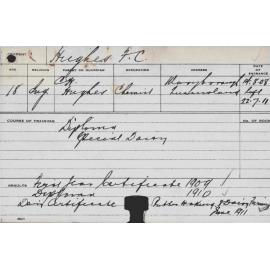 Hughes F. C.
AGE RELIGION PARENT OR GUARDIAN OCCUPATION ADDRESS DATE OF ENTRANCE
18 Hughes Chemist Maryborough Queensland 14.8.08 left 22-7-11
COURSE OF TRAINING
Diploma
Special Dairy
RESULTS First Year Certificate 1909
Diploma 1910
Dairy Certificate
June 1911